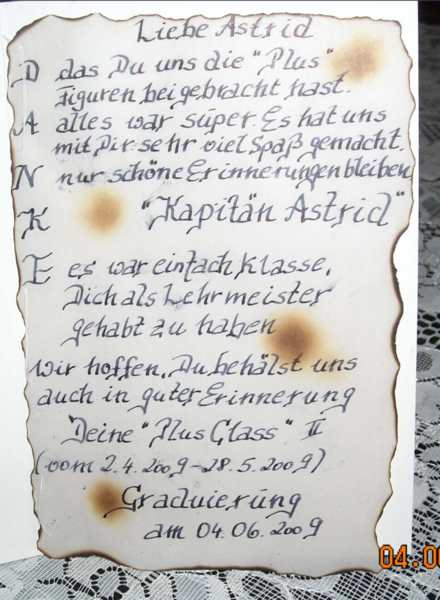 Liebe Astrid
D das Du uns die "Plus"
Figuren beigebracht hast.
A alles war super. Es hat uns
mit Dir sehr viel Spaß gemacht.
N nur schöne Erinnerungen bleiben
K "Kapitän Astrid"
E es war einfach Klasse,
Dich als Lehrmeister
gehabt zu haben
Wir hoffen, Du behälst uns
auch in guter Erinnerung
Deine "Plus Class" II
(vom 2.4.2009-28.5.2009)
Graduierung
am 04.06.2009
04:0